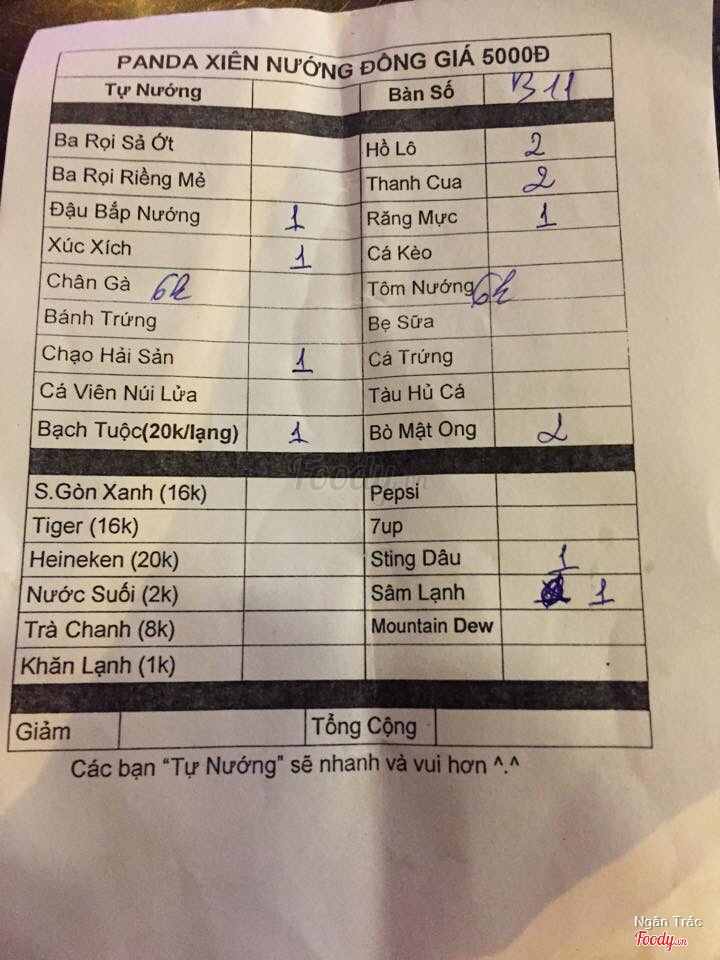 PANDA XIÊN NƯỚNG ĐỒNG GIÁ 5000Đ
Tự Nướng Bàn Số B11
Ba Rọi Sả Ớt Hồ Lô 2
Ba Rọi Riềng Mẻ Thanh Cua 2
Đậu Bắp Nướng 1 Răng Mực 1
Xúc Xích 1 Cá Kèo
Chân Gà 6k Tôm Nướng 6k
Bánh Trứng Bẹ Sữa
Chạo Hải Sản 1 Cá Trứng
Cá Viên Núi Lửa Tàu Hủ Cá
Bạch Tuộc(20k/lạng) 1 Bò Mật Ong 2
Foody.vn
S.Gòn Xanh (16k) Pepsi
Tiger (16k) 7up
Heineken (20k) Sting Dâu 1
Nước Suối (2k) Sâm Lạnh 1
Trà Chanh (8k) Mountain Dew
Khăn Lạnh (1k)
Giảm Tổng Cộng
Các bạn “Tự Nướng” sẽ nhanh và vui hơn ^.^
Ngân Trác
Foody.vn